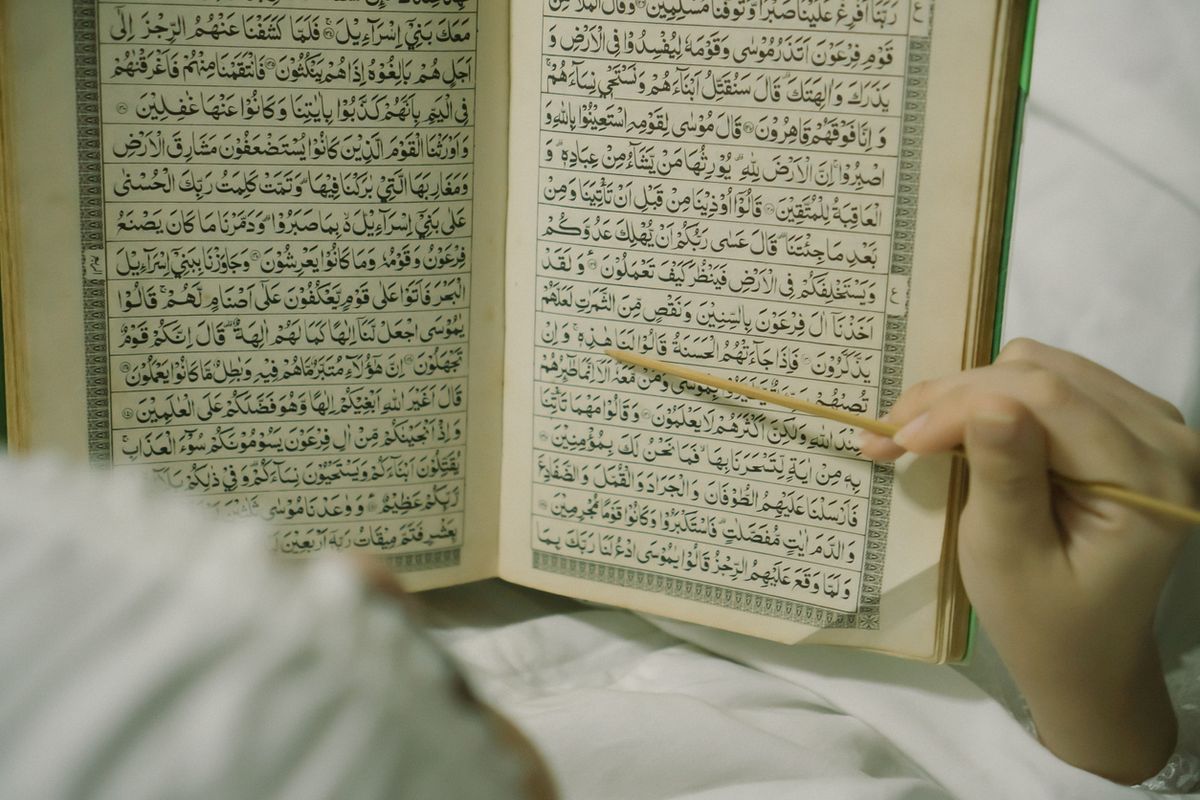 رَبَّنَآ اَفْرِغْ عَلَيْنَا صَبْرًا وَّتَوَفَّنَا مُسْلِمِيْنَ ۝ وَقَالَ الْمَلَاُ مِنْ
قَوْمِ فِرْعَوْنَ اَتَذَرُ مُوْسٰى وَقَوْمَهٗ لِيُفْسِدُوْا فِى الْاَرْضِ وَ
يَذَرَكَ وَاٰلِهَتَكَ ؕ قَالَ سَنُقَتِّلُ اَبْنَآءَهُمْ وَنَسْتَحْيٖ نِسَآءَهُمْ ۚ
وَ اِنَّا فَوْقَهُمْ قَاهِرُوْنَ ۝ قَالَ مُوْسٰى لِقَوْمِهِ اسْتَعِيْنُوْا بِاللّٰهِ وَ
اصْبِرُوْا ۚ اِنَّ الْاَرْضَ لِلّٰهِ ۙ يُوْرِثُهَا مَنْ يَّشَآءُ مِنْ عِبَادِهٖ ؕ وَ
الْعَاقِبَةُ لِلْمُتَّقِيْنَ ۝ قَالُوْٓا اُوْذِيْنَا مِنْ قَبْلِ اَنْ تَاْتِيَنَا وَمِنْۢ
بَعْدِ مَا جِئْتَنَا ؕ قَالَ عَسٰى رَبُّكُمْ اَنْ يُّهْلِكَ عَدُوَّكُمْ
وَيَسْتَخْلِفَكُمْ فِى الْاَرْضِ فَيَنْظُرَ كَيْفَ تَعْمَلُوْنَ ۝ وَلَقَدْ
اَخَذْنَآ اٰلَ فِرْعَوْنَ بِالسِّنِيْنَ وَنَقْصٍ مِّنَ الثَّمَرٰتِ لَعَلَّهُمْ
يَذَّكَّرُوْنَ ۝ فَاِذَا جَآءَتْهُمُ الْحَسَنَةُ قَالُوْا لَنَا هٰذِهٖ ۚ وَاِنْ
تُصِبْهُمْ سَيِّئَةٌ يَّطَّيَّرُوْا بِمُوْسٰى وَمَنْ مَّعَهٗ ؕ اَلَآ اِنَّمَا طٰٓئِرُهُمْ
عِنْدَ اللّٰهِ وَلٰكِنَّ اَكْثَرَهُمْ لَا يَعْلَمُوْنَ ۝ وَقَالُوْا مَهْمَا تَاْتِنَا
بِهٖ مِنْ اٰيَةٍ لِّتَسْحَرَنَا بِهَا ۙ فَمَا نَحْنُ لَكَ بِمُؤْمِنِيْنَ ۝
فَاَرْسَلْنَا عَلَيْهِمُ الطُّوْفَانَ وَالْجَرَادَ وَالْقُمَّلَ وَالضَّفَادِعَ
وَالدَّمَ اٰيٰتٍ مُّفَصَّلٰتٍ ۫ فَاسْتَكْبَرُوْا وَكَانُوْا قَوْمًا مُّجْرِمِيْنَ ۝
وَلَمَّا وَقَعَ عَلَيْهِمُ الرِّجْزُ قَالُوْا يٰمُوْسَى ادْعُ لَنَا رَبَّكَ بِمَا
ع
ع
مَعَكَ بَنِيْٓ اِسْرَآءِيْلَ ۝ فَلَمَّا كَشَفْنَا عَنْهُمُ الرِّجْزَ اِلٰٓى
اَجَلٍ هُمْ بَالِغُوْهُ اِذَا هُمْ يَنْكُثُوْنَ ۝ فَانْتَقَمْنَا مِنْهُمْ فَاَغْرَقْنٰهُمْ
فِى الْيَمِّ بِاَنَّهُمْ كَذَّبُوْا بِاٰيٰتِنَا وَكَانُوْا عَنْهَا غٰفِلِيْنَ ۝
وَاَوْرَثْنَا الْقَوْمَ الَّذِيْنَ كَانُوْا يُسْتَضْعَفُوْنَ مَشَارِقَ الْاَرْضِ
وَمَغَارِبَهَا الَّتِيْ بٰرَكْنَا فِيْهَا ؕ وَتَمَّتْ كَلِمَتُ رَبِّكَ الْحُسْنٰى
عَلٰى بَنِيْٓ اِسْرَآءِيْلَ ۙ بِمَا صَبَرُوْا ؕ وَدَمَّرْنَا مَا كَانَ يَصْنَعُ
فِرْعَوْنُ وَقَوْمُهٗ وَمَا كَانُوْا يَعْرِشُوْنَ ۝ وَجٰوَزْنَا بِبَنِيْٓ اِسْرَآءِيْلَ
الْبَحْرَ فَاَتَوْا عَلٰى قَوْمٍ يَّعْكُفُوْنَ عَلٰٓى اَصْنَامٍ لَّهُمْ ۚ قَالُوْا
يٰمُوْسَى اجْعَلْ لَّنَآ اِلٰهًا كَمَا لَهُمْ اٰلِهَةٌ ؕ قَالَ اِنَّكُمْ قَوْمٌ
تَجْهَلُوْنَ ۝ اِنَّ هٰٓؤُلَآءِ مُتَبَّرٌ مَّا هُمْ فِيْهِ وَبٰطِلٌ مَّا كَانُوْا يَعْمَلُوْنَ ۝
قَالَ اَغَيْرَ اللّٰهِ اَبْغِيْكُمْ اِلٰهًا وَّهُوَ فَضَّلَكُمْ عَلَى الْعٰلَمِيْنَ ۝
وَاِذْ اَنْجَيْنٰكُمْ مِّنْ اٰلِ فِرْعَوْنَ يَسُوْمُوْنَكُمْ سُوْٓءَ الْعَذَابِ ۚ
يُقَتِّلُوْنَ اَبْنَآءَكُمْ وَيَسْتَحْيُوْنَ نِسَآءَكُمْ ؕ وَفِيْ ذٰلِكُمْ بَلَآءٌ
رَّبِّكُمْ عَظِيْمٌ ۝ وَوٰعَدْنَا مُوْسٰى ثَلٰثِيْنَ
بِعَشْرٍ فَتَمَّ مِيْقَاتُ رَبِّهٖٓ اَرْبَعِيْنَ